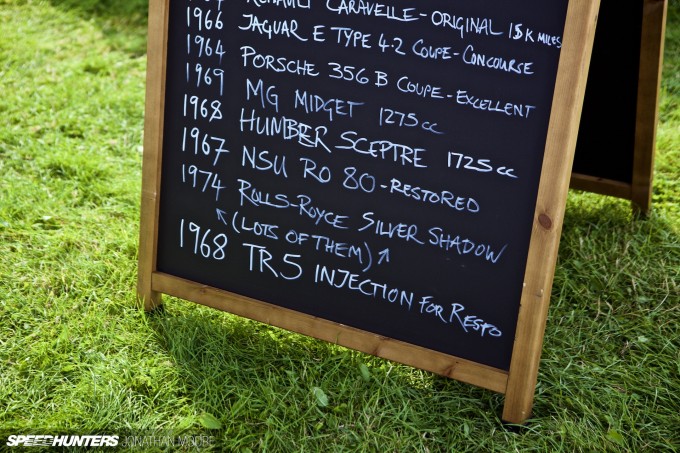 RENAULT CARAVELLE - ORIGINAL 15K MILES
1966 JAGUAR E TYPE 4.2 COUPE - CONCOURSE
1964 PORSCHE 356 B COUPE - EXCELLENT
1969 MG MIDGET 1275cc
1968 HUMBER SCEPTRE 1725cc
1967 NSU RO 80 - RESTORED
1974 ROLLS-ROYCE SILVER SHADOW
(LOTS OF THEM)
1968 TR5 INJECTION FOR RESTO
SPEEDHUNTERS JONATHAN MOORE